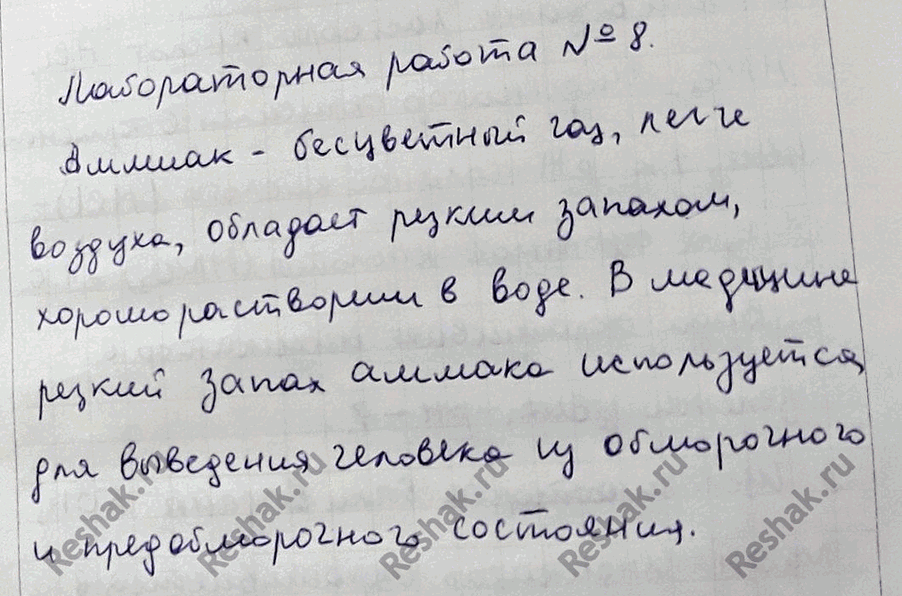 Лабораторная работа № 8.
Аммиак - бесцветный газ, легче
воздуха, обладает резким запахом,
хорошо растворим в воде. В медицине
резкий запах аммака используется
для выведения человека из обморочного
и предобморочного состояния.
Reshak.ru Reshak.ru Reshak.ru Reshak.ru Reshak.ru